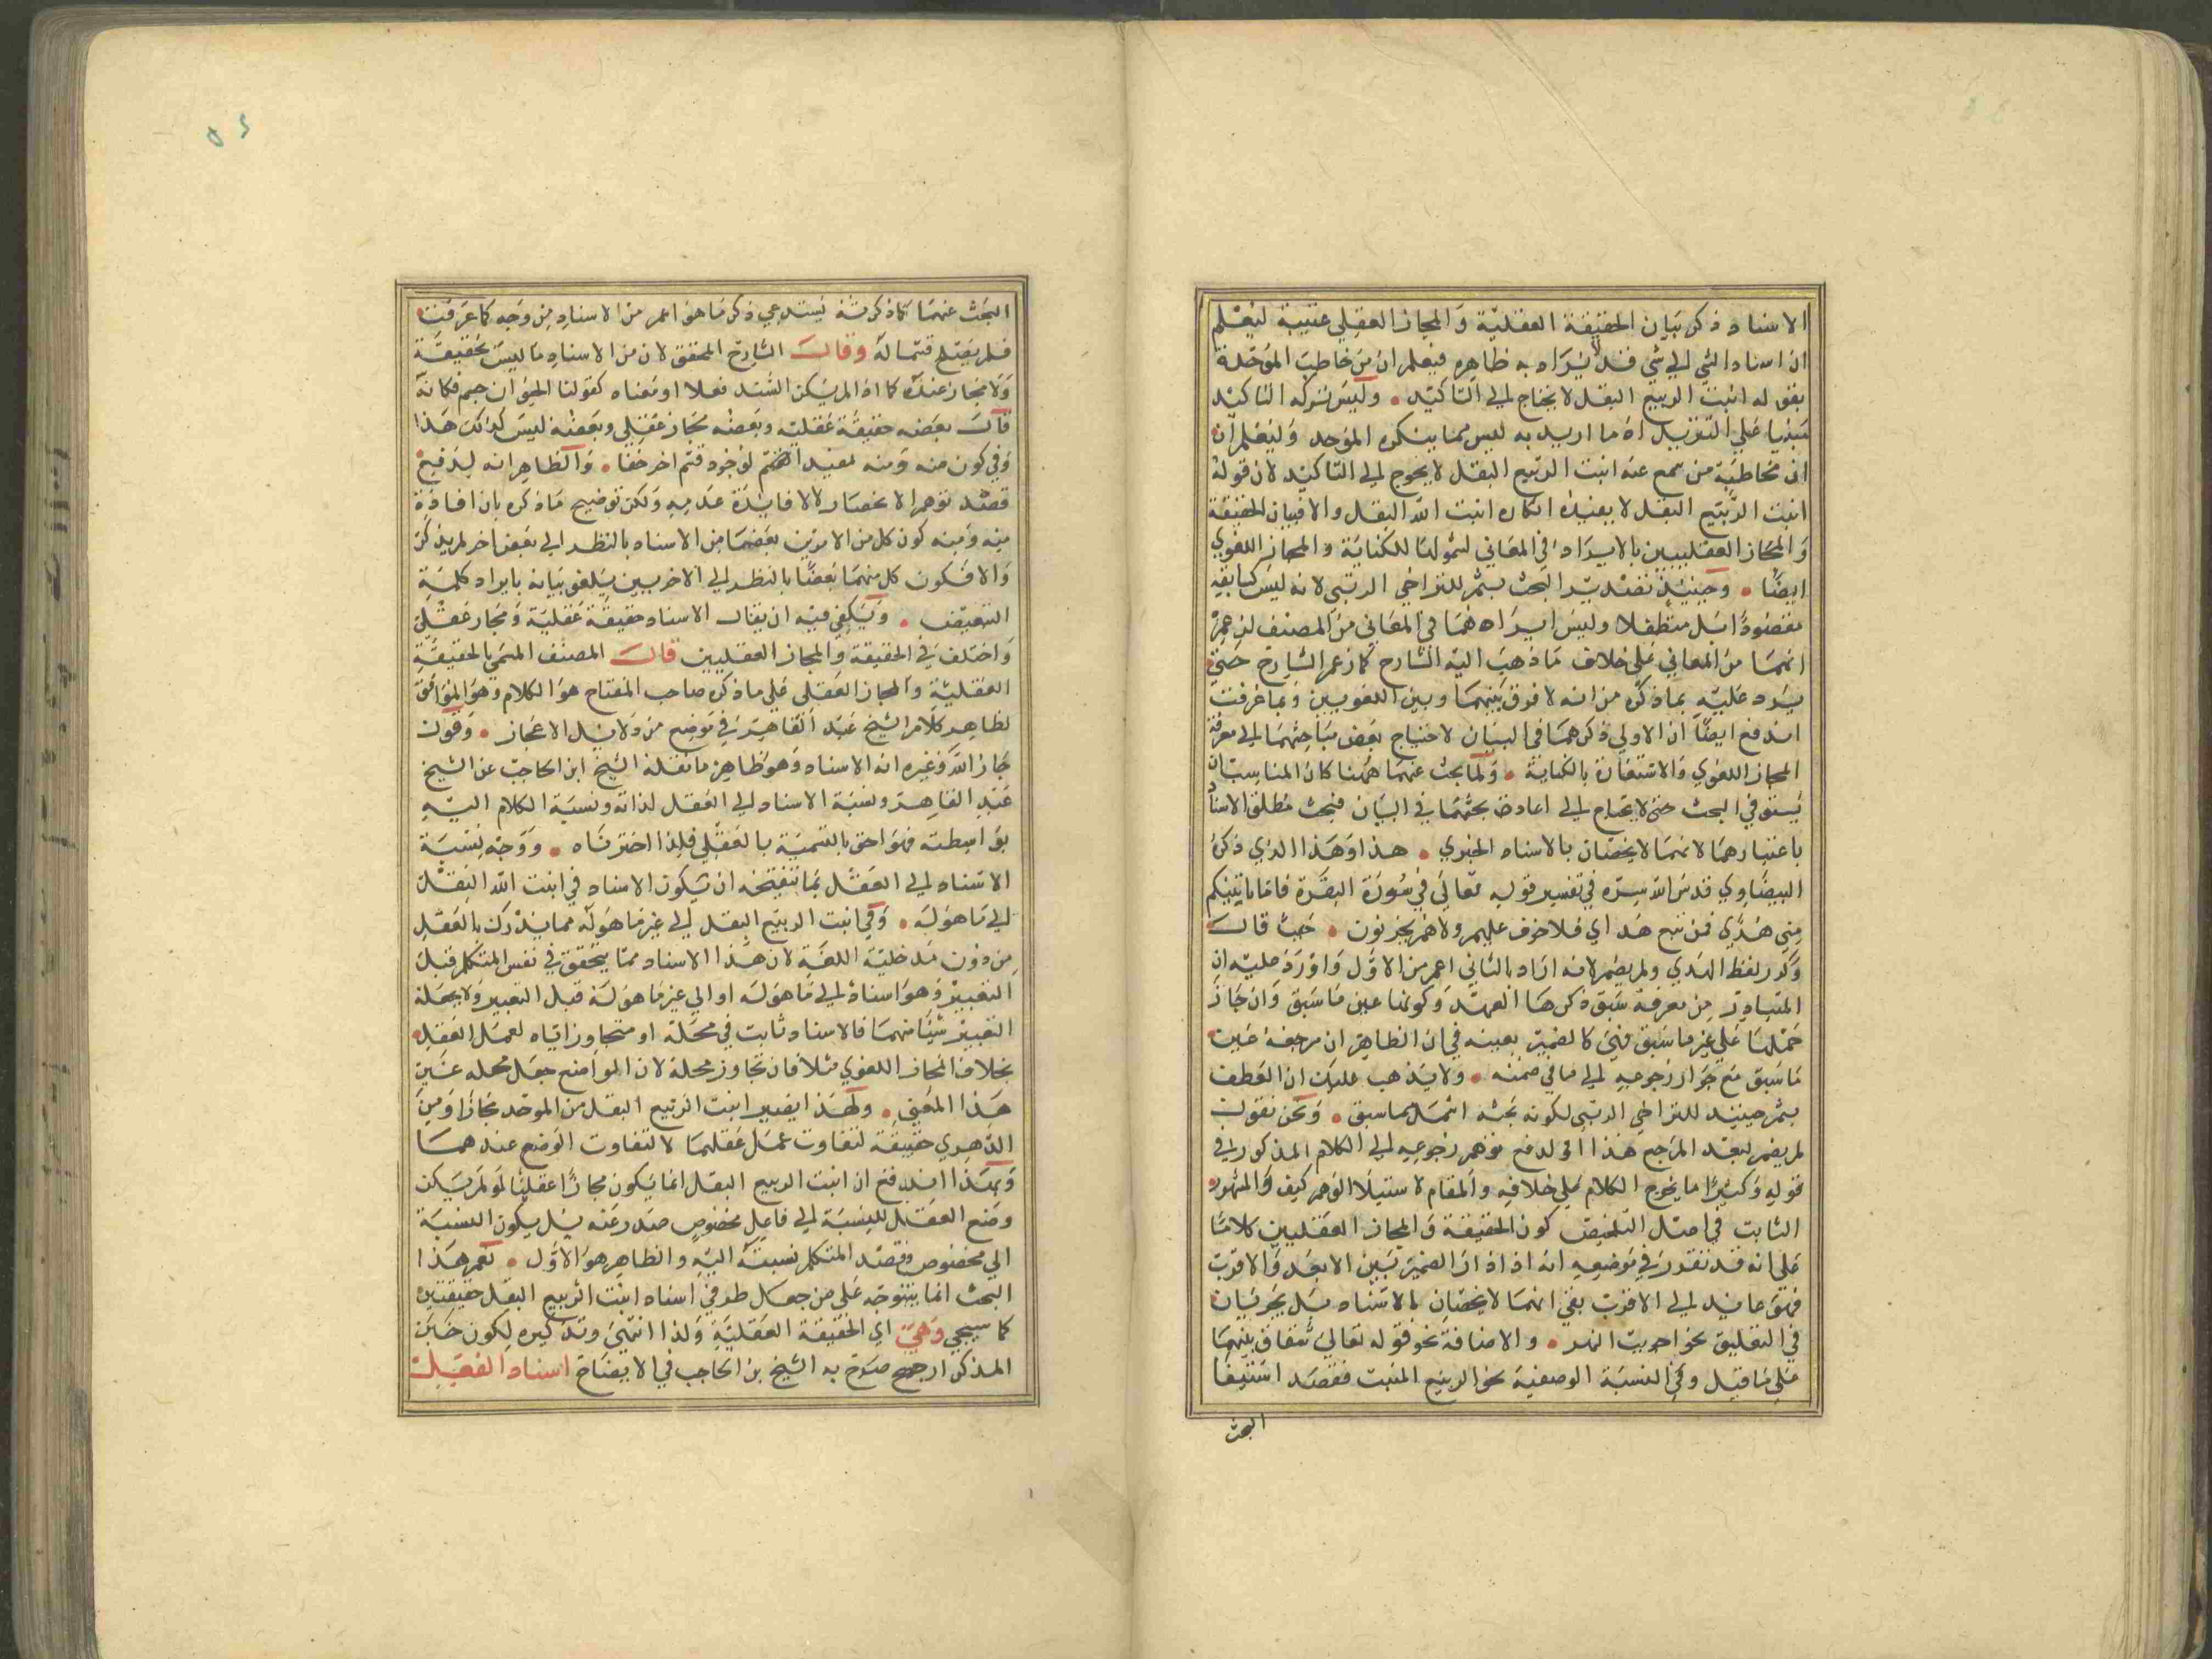 الاسناد ذكر بيان الحقيقة العقلية والمجاز العقلي عقيبه ليعلم
ان اسناد الشي الي شي قد لا يراد به ظاهره فيعلم ان من خاطب الموحد
بقوله انبت الربيع البقل لا يحتاج الي التاكيد وليس تركه التاكيد
مبنيا علي التنزيل اذ ما اريد به ليس مما ينكره الموحد وليعلم ان
ان مخاطبة من سمع عنه انبت الربيع البقل لا يحوج الي التاكيد لان قوله
انبت الربيع البقل لا يفيد انكاره انبت الله البقل والا فبيان الحقيقة
والمجاز العقليين بالايراد في المعاني لشمولها للكناية والمجاز اللغوي
ايضا وحينئذ تصدير البحث بثم للتراخي الرتبي لانه ليس كسابقيه
مقصودا بل متطفلا وليس ايرادهما في المعاني من المصنف لزعمه
انهما من المعاني علي خلاف ما ذهب اليه الشارح كما زعم الشارح حتي
يرد عليه بما ذكره من انه لا فرق بينهما وبين اللغويين وبما عرفت
اندفع ايضا ان الاولي ذكرهما في البيان لاحتياج بعض مباحثهما الي معرفة
المجاز اللغوي والاستعارة بالكناية ولما بحث عنهما ههنا كان المناسب ان
يستوفي البحث حتي لا يحتاج الي اعادة بحثهما في البيان فبحث مطلق الاسناد
باعتبارهما لانهما لا يخصان بالاسناد الخبري هذا وهذا الذي ذكره
البيضاوي قدس الله سره في تفسير قوله تعالي في سورة البقرة فاما ياتينكم
مني هدي فمن تبع هداي فلا خوف عليهم ولا هم يحزنون حيث قال
وكرر لفظ الهدي ولم يضمر لانه اراد بالثاني اعم من الاول واورد عليه ان
المتبادر من معرفة سبق ذكرها العهد وكونها عين ما سبق وان جاز
حملها علي غير ما سبق فهي كالضمير بعينه في ان الظاهر ان مرجعه عين
ما سبق مع جواز رجوعه الي ما في ضمنه ولا يذهب عليك ان العطف
بثم حينئذ للتراخي الرتبي لكونه بحثه اشمل مما سبق ونحن نقول
لم يضمر لبعد المرجع هذا او لدفع توهم رجوعه الي الكلام المذكور في
قوله وكثيرا ما يخرج الكلام علي خلافه والمقام لاستيلاء الوهم كيف والمشهور
الثابت في اصل التلخيص كون الحقيقة والمجاز العقليين كلاما
علي انه قد تقرر في موضعه انه اذا دار الضمير بين الابعد والاقرب
فهو عايد الي الاقرب بقي انهما لا يخصان بالاسناد بل يجريان
في التعليق نحو اجريت النهر والاضافة نحو قوله تعالي شقاق بينهما
علي ما قيل وفي النسبة الوصفية نحو الربيع المنبت فقصد استيفا
البحث
البحث عنهما كما ذكرته يستدعي ذكر ما هو اعم من الاسناد من وجه كما عرفت
فلم يصح قسما له وقال الشارح المحقق لان من الاسناد ما ليس بحقيقة
ولا مجاز عنده كما اذا لم يكن المسند فعلا او معناه كقولنا الحيوان جسم فكانه
قال بعضه حقيقة عقلية وبعضه مجاز عقلي وبعضه ليس كذلك هذا
وفي كون منه ومنه لوجود قسم اخر خفا والظاهر انه ليدفع
قصد توهم الانحصار لا لافايدة عدمه ولكن توضيح ما ذكره بان افادة
منه ومنه كون كل من الامرين بعضا من الاسناد بالنظر الي بعض اخر لم يذكر
والا فكون كل منهما بعضا بالنظر الي الاخر بين يلغو بيانه بايراد كلمة
التبعيض ويكفي فيه ان يقال الاسناد حقيقة عقلية ومجاز عقلي
واختلف في الحقيقة والمجاز العقليين قال المصنف المسمي بالحقيقة
العقلية والمجاز العقلي علي ما ذكره صاحب المفتاح هو الكلام وهو الموافق
لظاهر كلام الشيخ عبد القاهر في موضع من دلايل الاعجاز وقول
جار الله وغيره انه الاسناد وهو ظاهر ما نقله الشيخ ابن الحاجب عن الشيخ
عبد القاهر ونسبة الاسناد الي العقل لذاته ونسبة الكلام اليه
بواسطته فهو احق بالتسمية بالعقلي فلذا اخترناه ووجه نسبة
الاسناد الي العقل بما تنقحه ان يكون الاسناد في انبت الله البقل
الي ما هو له وفي انبت الربيع البقل الي غير ما هو له مما يدرك بالعقل
من دون مدخلية اللغة لان هذا الاسناد مما يتحقق في نفس المتكلم قبل
التعبير وهو اسناد الي ما هو له او الي غير ما هو له قبل التعبير ولا يجعله
التعبير شيئا منهما فالاسناد ثابت في محله او متجاوز اياه لعمل العقل
بخلاف المجاز اللغوي مثلا فان تجاوز محله لان الواضع جعل محله غير
هذا المعني ولهذا يصير انبت الربيع البقل من الموحد مجازا ومن
الدهري حقيقة لتفاوت عمل عقلهما لا لتفاوت الوضع عندهما
وبهذا اندفع ان انبت الربيع البقل انما يكون مجازا عقليا لو لم يكن
وضع العقل للنسبة الي فاعل مخصوص صدر عنه بل يكون النسبة
الي مخصوص وقصد المتكلم نسبته اليه والظاهر هو الاول نعم هذا
البحث انما يتوجه علي من جعل طرفي اسناد انبت الربيع البقل حقيقتين
كما سيجي وهي اي الحقيقة العقلية ولذا انثي وتذكيره لكون خبره
المذكر ارجح صرح به الشيخ بن الحاجب في الايضاح اسناد الفعل